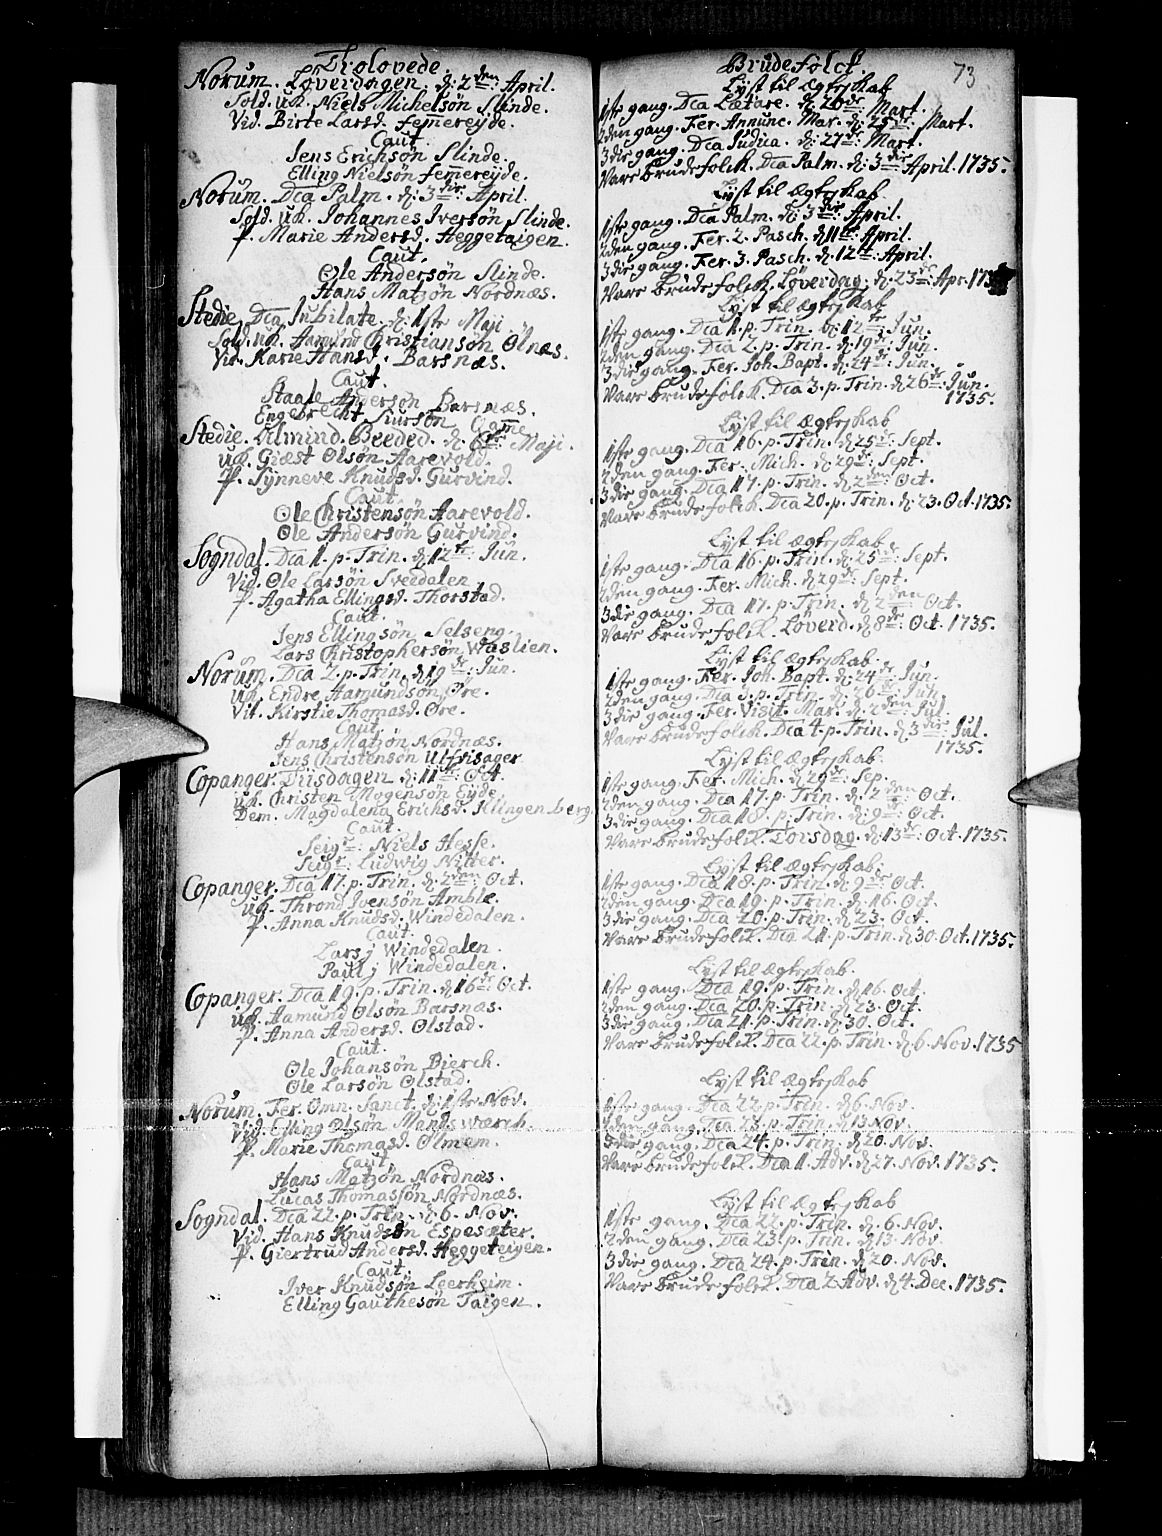 Trolovede.
Norum. Löverdagen. d: 2den: April.
Sold. uk. Niels Michelsön Slinde.
Vid. Birte Larsd. femereyde.
Caut.
Jens Erichsön Slinde.
Elling Nielsön femereyde.
Norum. Dca Palm. d: 3die: April.
Sold. uk. Johannes Iversön Slinde.
P. Marie Andersd. Heggetaigen.
Caut.
Ole Andersön Slinde.
Hans Matzön Nordnæs.
Stedie. Dca Jubilate. d: 1ste Maji.
Sold. uk. Aamund Christiansön Ölnæs.
Vid. Karie Hansd. Barsnæs.
Caut.
Staale Andersön Barsnæs.
Engebrecht Siursön
Stedie. Almind. Beeded. d: Maji.
uk. Giæst Olsön Aarevold.
P. Synneve Knudsd. Gurvind.
Caut.
Ole Christensön Aarevold.
Ole Andersön Gurvind.
Sogndal. Dca 1. p. Trin. d: 12te: Jun.
Vid. Ole Larsön Sveedalen.
P. Agatha Ellingsd. Thorstad.
Caut.
Jens Ellingsön Selseng.
Lars Christophersön Waslien.
Norum. Dca 2. p. Trin. d: 19de: Jun.
uk. Endre Aamundsön Øre.
Vit. Kirstie Thomasd. Øre.
Caut.
Hans Matzön Nordnæs.
Jens Christensön Ulfvisager
Copanger. Tiisdagen. d: 11te: Oct.
uk. Christen Mogensön Eyde.
Dem. Magdalena Erichsd. Klingenberg.
Caut.
Seigr: Niels Hesse.
Seigr: Ludwig Nitter.
Copanger. Dca 17. p. Trin. d: 2den: Oct.
uk. Thrond Jvensön Amble.
P. Anna Knudsd. Windedalen.
Caut.
Lars j Windedalen.
Paul j Windedalen.
Copanger. Dca 19. p. Trin. d: 16de: Oct.
uk. Aamund Olsön Barsnæs.
P. Anna Andersd. Olstad.
Caut.
Ole Johansön Bierch.
Ole Larsön Olstad.
Norum. Fer. Omn. Sanct. d: 1ste Nov.
Vid. Elling Olsön Mandsværch.
P. Marie Thomasd. Olmem.
Caut.
Hans Matzön Nordnæs.
Lucas Thomassön Nordnæs.
Sogndal. Dca 22. p. Trin. d: 6. Nov.
Vid. Hans Knudsön Espesæter.
P. Giertrud Andersd. Heggeteigen.
Caut.
Iver Knudsön Leerheim.
Elling Gauthesön Taigen.
Brudefolck. 73
Lyst til Ægteskab
1ste gang. Dca Lætare. d: 20de: Mart.
2den gang. Fer. Annunc. Mar. d: 25de: Mart.
3die gang. Dca Judica. d: 27de: Mart.
Vare brudefolck. Dca Palm. d: 3die: April. 1735.
Lyst til Ægteskab.
1ste gang. Dca Palm. d: 3die: April.
2den gang. Fer. 2. Pasch. d: 11te: April.
3die gang. Fer. 3. Pasch. d: 12te: April.
Vare brudefolck. Löverdag. d: 23de: Apr. 1735
Lyst til Ægteskab
1ste gang. Dca 1. p. Trin. d: 12te: Jun.
2den gang. Dca 2. p. Trin. d: 19de: Jun.
3die gang. Fer. Joh. Bapt. d: 24de: Jun.
Vare brudefolck. Dca 3. p. Trin. d: 26de: Jun.
1735.
Lyst til Ægteskab
1ste gang. Dca 16. p. Trin. d: 25de: Sept.
2den gang. Fer. Mich. d: 29de: Sept.
3die gang. Dca 17. p. Trin. d: 2den: Oct.
Vare brudefolck. Dca 20. p. Trin. d: 23. Oct. 1735.
Lyst til Ægteskab
1ste gang. Dca 16. p. Trin. d: 25de: Sept.
2den gang. Fer. Mich. d: 29de: Sept.
3die gang. Dca 17. p. Trin. d: 2den: Oct.
Vare brudefolck. Löverd. d: 8de: Oct. 1735.
Lyst til Ægteskab.
1ste gang. Fer. Joh. Bapt. d: 24de: Jun.
2den gang. Dca 3. p. Trin. d: 26de: Jun.
3die gang. Fer. Visit. Mar. d: 2den: Jul.
Vare brudefolck. Dca 4. p. Trin. d: 3die: Jul.
1735.
Lyst til Ægteskab.
1ste gang. Fer. Mich. d: 29de: Sep.
2den gang. Dca 17. p. Trin. d: 2den: Oct.
3die gang. Dca 18. p. Trin. d: 9de: Oct.
Vare brudefolck. Torsdag. d: 13de: Oct. 1735.
Lyst til Ægteskab.
1ste gang. Dca 18. p. Trin. d: 9de: Oct.
2den gang. Dca 19. p. Trin. d: 16. Oct.
3die gang. Dca 20. p. Trin. d: 23. Oct.
Vare brudefolck. Dca 21. p. Trin. d: 30. Oct. 1735.
Lyst til Ægteskab.
1ste gang. Dca 19. p. Trin. d: 16. Oct.
2den gang. Dca 20. p. Trin. d: 23. Oct.
3die gang. Dca 21. p. Trin. d: 30. Oct.
Vare brudefolck. Dca 22. p. Trin. d: 6. Nov. 1735
Lyst til Ægteskab
1ste gang. Dca 22. p. Trin. d: 6. Nov.
2den gang. Dca 23. p. Trin. d: 13. Nov.
3die gang. Dca 24. p. Trin. d: 20. Nov.
Vare brudefolck. Dca 1. Adv. d: 27. Nov. 1735.
Lyst til Ægteskab
1ste gang. Dca 22. p. Trin. d: 6. Nov.
2den gang. Dca 23. p. Trin. d: 13. Nov.
3die gang. Dca 24. p. Trin. d: 20. Nov.
Vare brudefolck. Dca 2. Adv. d: 4. Dec. 1735.